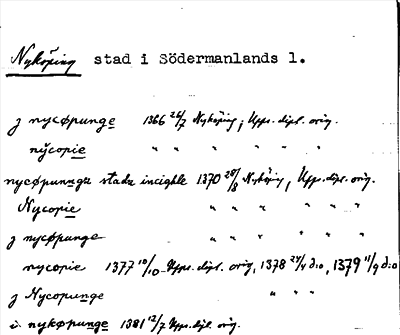 Nyköping stad i Södermanlands l.
j nycøpunge 1366 26/7 Nyköping, Upps. dipl. orig.
nycopie " " " " " "
nycøpunngæ stadz incighle 1370 28/8 Nyköping, Upps. dipl. orig.
Nycopie " " " " " "
j nycøpunge " " " " " "
nycopie 1377 10/10 Upps. dipl. orig., 1378 24/4 d:o, 1379 11/9 d:o
j Nycopunge " " "
i nykøpunge 1381 12/7 Upps. dipl. orig.